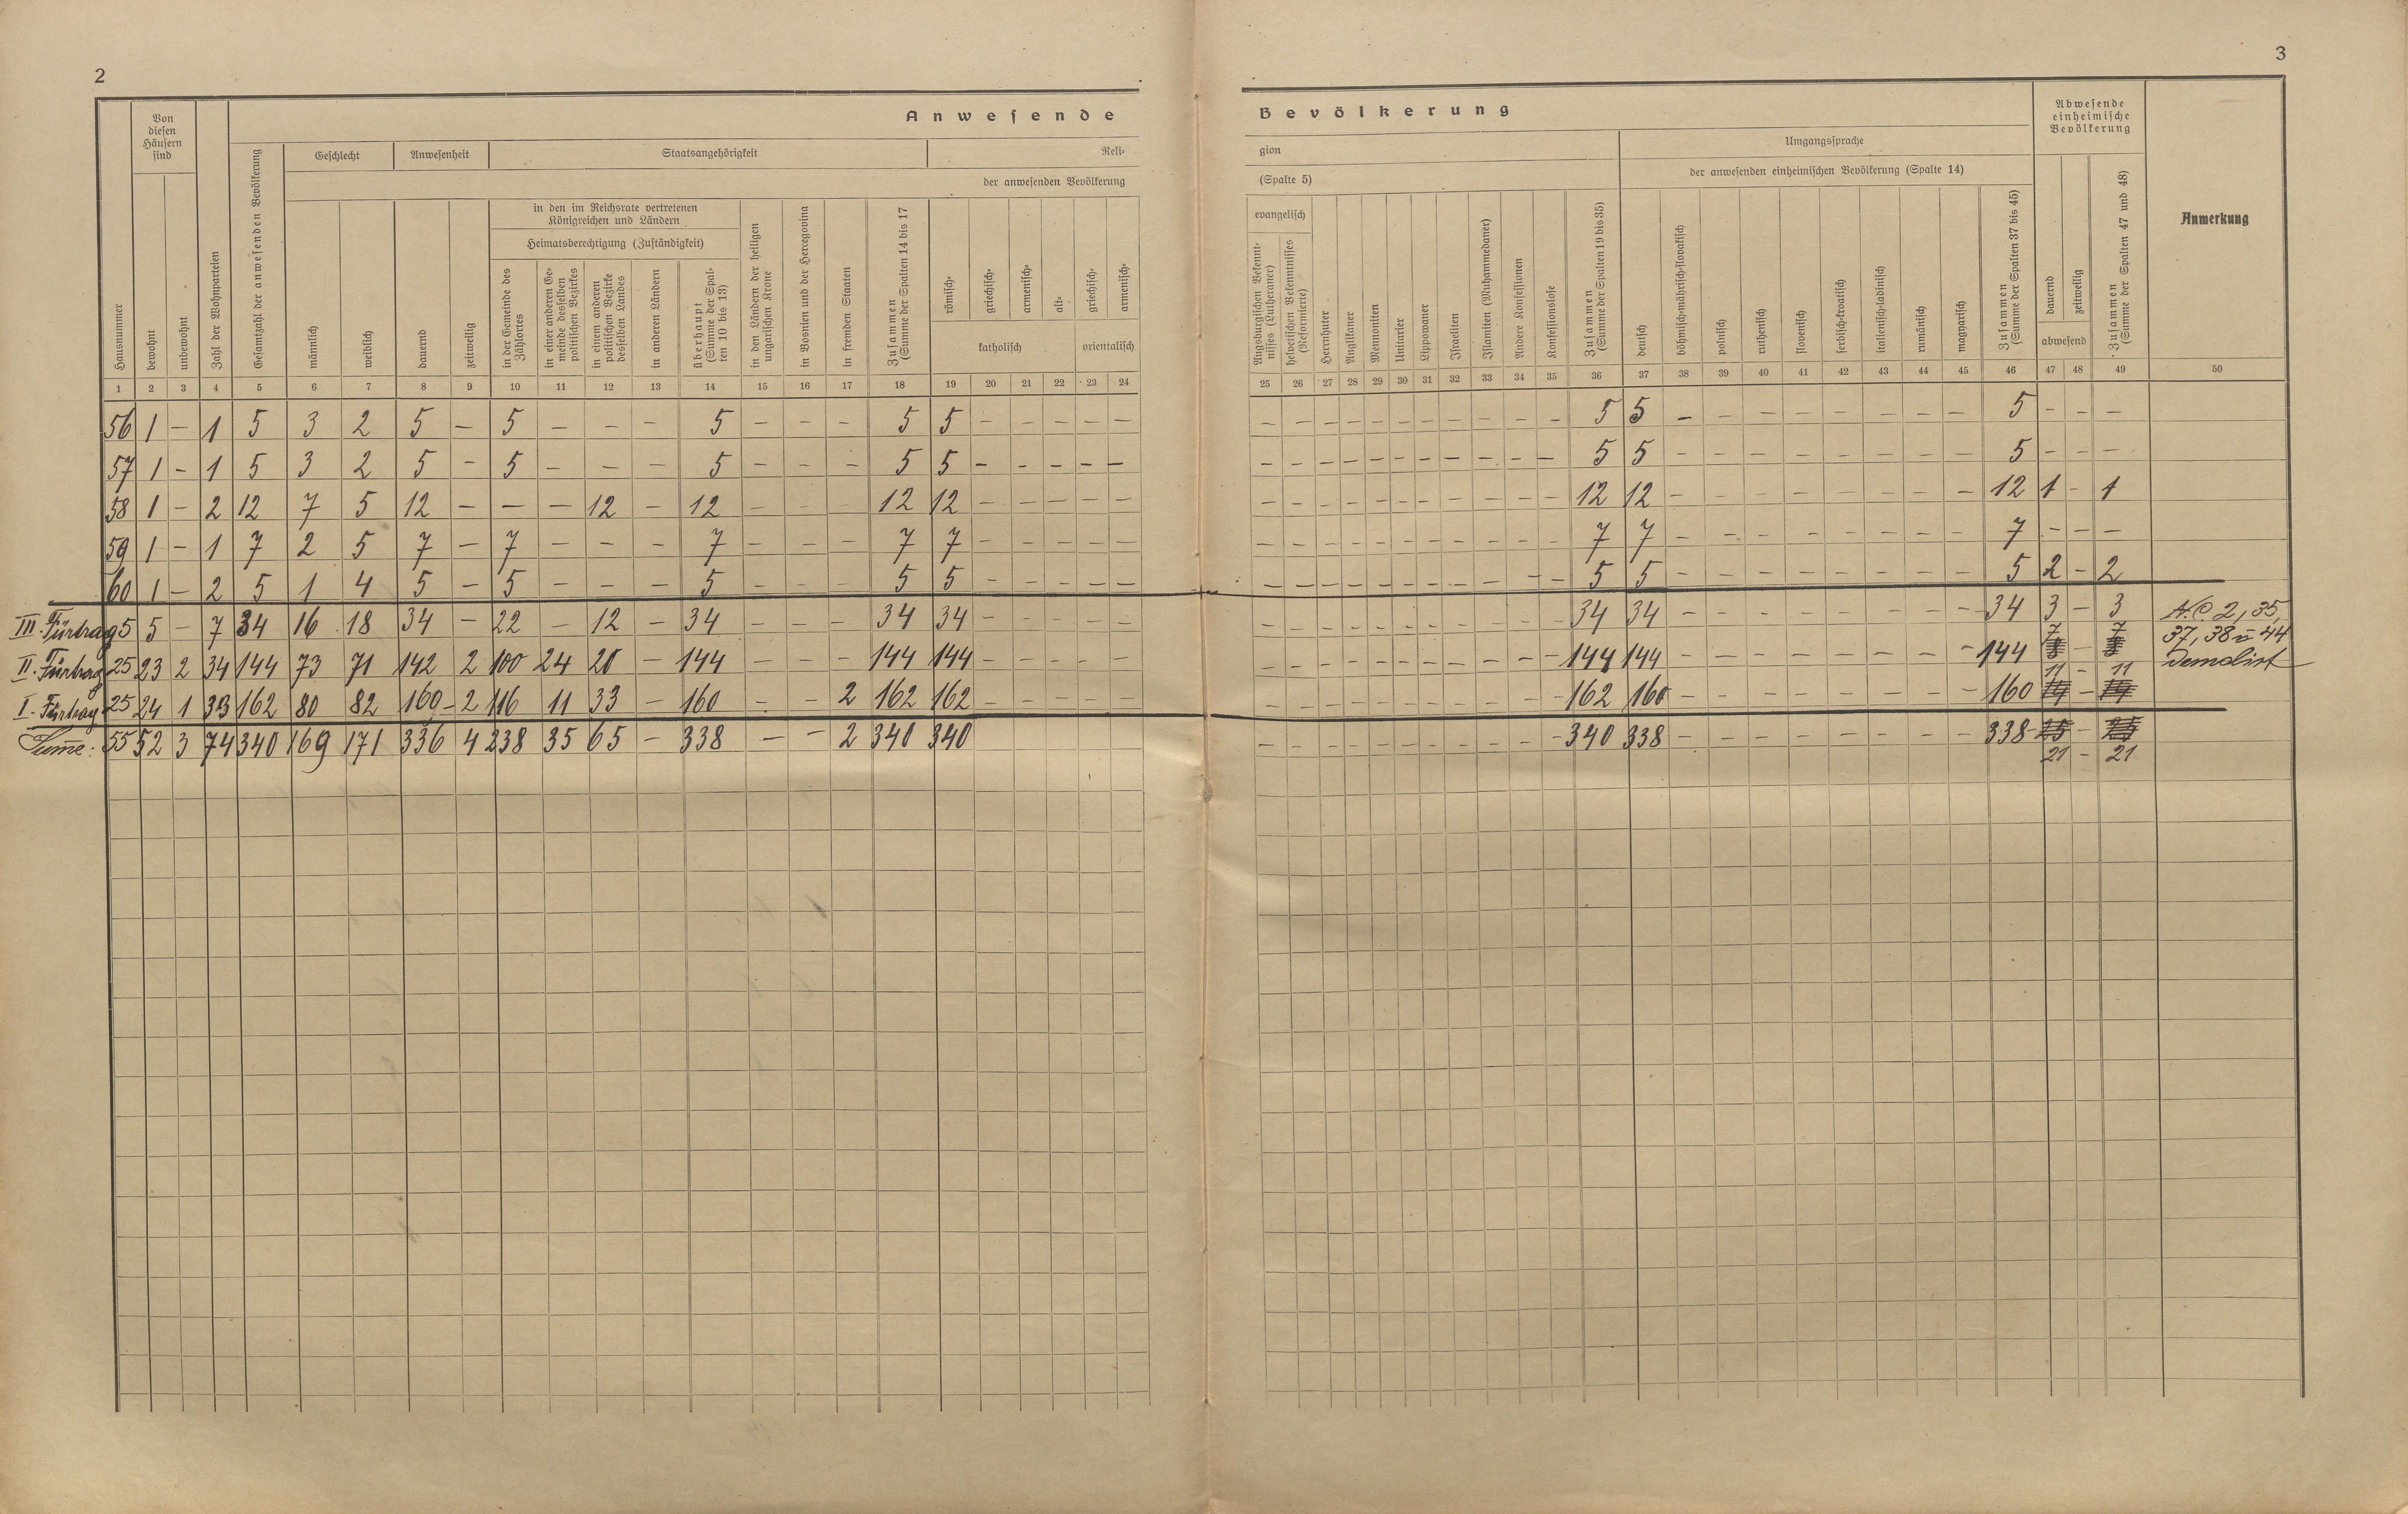 2
3
Anwesende
Bevölkerung
Von diesen Häusern sind
Geschlecht
Anwesenheit
Staatsangehörigkeit
Reli-
gion
der anwesenden Bevölkerung
(Spalte 5)
Umgangssprache
der anwesenden einheimischen Bevölkerung (Spalte 14)
Abwesende einheimische Bevölkerung
Anmerkung
in den im Reichsrate vertretenen Königreichen und Ländern
Heimatsberechtigung (Zuständigkeit)
evangelisch
Hausnummer
bewohnt
unbewohnt
Zahl der Wohnparteien
Gesamtzahl der anwesenden Bevölkerung
männlich
weiblich
dauernd
zeitweilig
in der Gemeinde des Zählortes
in einer anderen Gemeinde desselben politischen Bezirkes
in einem anderen politischen Bezirke desselben Landes
in anderen Ländern
überhaupt (Summe der Spalten 10 bis 13)
in den Ländern der heiligen ungarischen Krone
in Bosnien und der Hercegovina
in fremden Staaten
Zusammen (Summe der Spalten 14 bis 17
römisch-
griechisch-
armenisch-
alt-
katholisch
griechisch-
armenisch-
orientalisch
Augsburgischen Bekenntnisses (Lutheraner)
helvetischen Bekenntnisses (Reformierte)
Herrnhuter
Anglikaner
Mennoniten
Unitarier
Lippowaner
Israeliten
Islamiten (Muhammedaner)
Andere Konfessionen
Konfessionslose
Zusammen (Summe der Spalten 19 bis 35)
deutsch
böhmisch-mährisch-slovakisch
polnisch
ruthenisch
slovenisch
serbisch-kroatisch
italienisch-ladinisch
rumänisch
magyarisch
Zusammen (Summe der Spalten 37 bis 45)
dauernd
zeitweilig
abwesend
Zusammen (Summe der Spalten 47 und 48)
1 2 3 4 5 6 7 8 9 10 11 12 13 14 15 16 17 18 19 20 21 22 23 24 25 26 27 28 29 30 31 32 33 34 35 36 37 38 39 40 41 42 43 44 45 46 47 48 49 50
56 1 – 1 5 3 2 5 – 5 – – – 5 – – – 5 5 – – – – – – – – – – – – – – – – 5 5 – – – – – – – – 5 – – –
57 1 – 1 5 3 2 5 – 5 – – – 5 – – – 5 5 – – – – – – – – – – – – – – – – 5 5 – – – – – – – – 5 – – –
58 1 – 2 12 7 5 12 – – – 12 – 12 – – – 12 12 – – – – – – – – – – – – – – – – 12 12 – – – – – – – – 12 1 – 1
59 1 – 1 7 2 5 7 – 7 – – – 7 – – – 7 7 – – – – – – – – – – – – – – – – 7 7 – – – – – – – – 7 – – –
60 1 – 2 5 1 4 5 – 5 – – – 5 – – – 5 5 – – – – – – – – – – – – – – – – 5 5 – – – – – – – – 5 2 – 2
III. Fürtrag 5 5 – 7 34 16 18 34 – 22 – 12 – 34 – – – 34 34 – – – – – – – – – – – – – – – – 34 34 – – – – – – – – 34 3 – 3 N.C. 2, 35,
II. Fürtrag 25 23 2 34 144 73 71 142 2 100 24 20 – 144 – – – 144 144 – – – – – – – – – – – – – – – – 144 144 – – – – – – – – 144 7 – 7 37, 38 u 44
Demolirt
I. Fürtrag 25 24 1 33 162 80 82 160 – 2 116 11 33 – 160 – – 2 162 162 – – – – – – – – – – – – – – – – 162 160 – – – – – – – – 160 11 – 11
Sume: 55 52 3 74 340 169 171 336 4 238 35 65 – 338 – – 2 340 340 – – – – – – – – – – – 340 338 – – – – – – – – 338 25 – 25
21 – 21